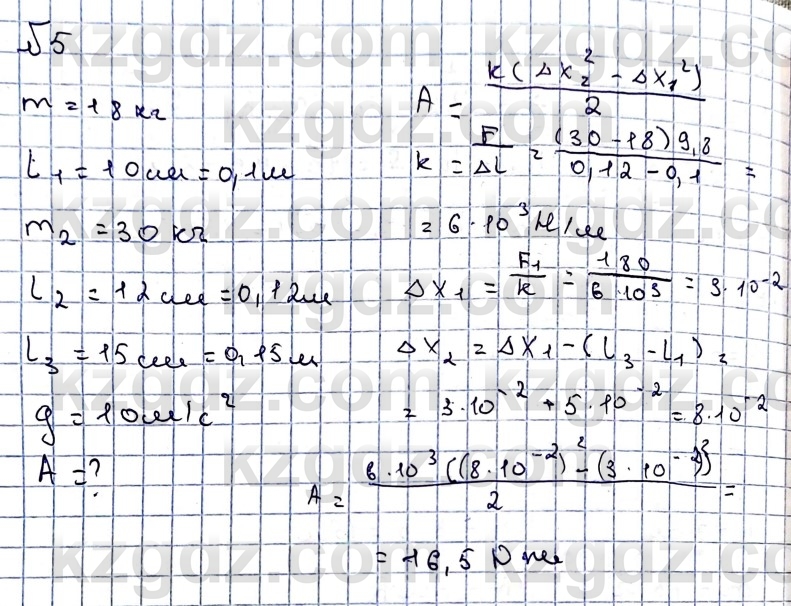 №5
m = 18 кг
L₁ = 10 см = 0,1 м
m₂ = 30 кг
L₂ = 12 см = 0,12 м
L₃ = 15 см = 0,15 м
g = 10 м/с²
A = ?
A = k(Δx₂² - Δx₁²) / 2
k = F / ΔL = (30 - 18) 9,8 / 0,12 - 0,1 =
= 6·10³ Н/м
Δx₁ = F₁ / k = 180 / 6·10³ = 3·10⁻²
Δx₂ = Δx₁ - (L₃ - L₁) =
= 3·10⁻² + 5·10⁻² = 8·10⁻²
A = 6·10³ ((8·10⁻²)² - (3·10⁻²)²) / 2 =
= 16,5 Дж
kzgdz.com